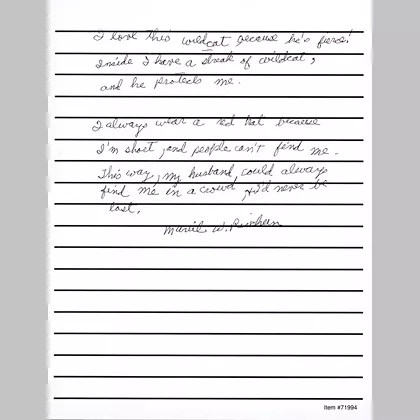 I love this wildcat because he's fierce!
Inside I have a streak of wildcat,
and he protects me.
I always wear a red hat because
I'm short, and people can't find me.
This way, my husband, could always
find me in a crowd, & I'd never be
lost.
W.
Item #71994